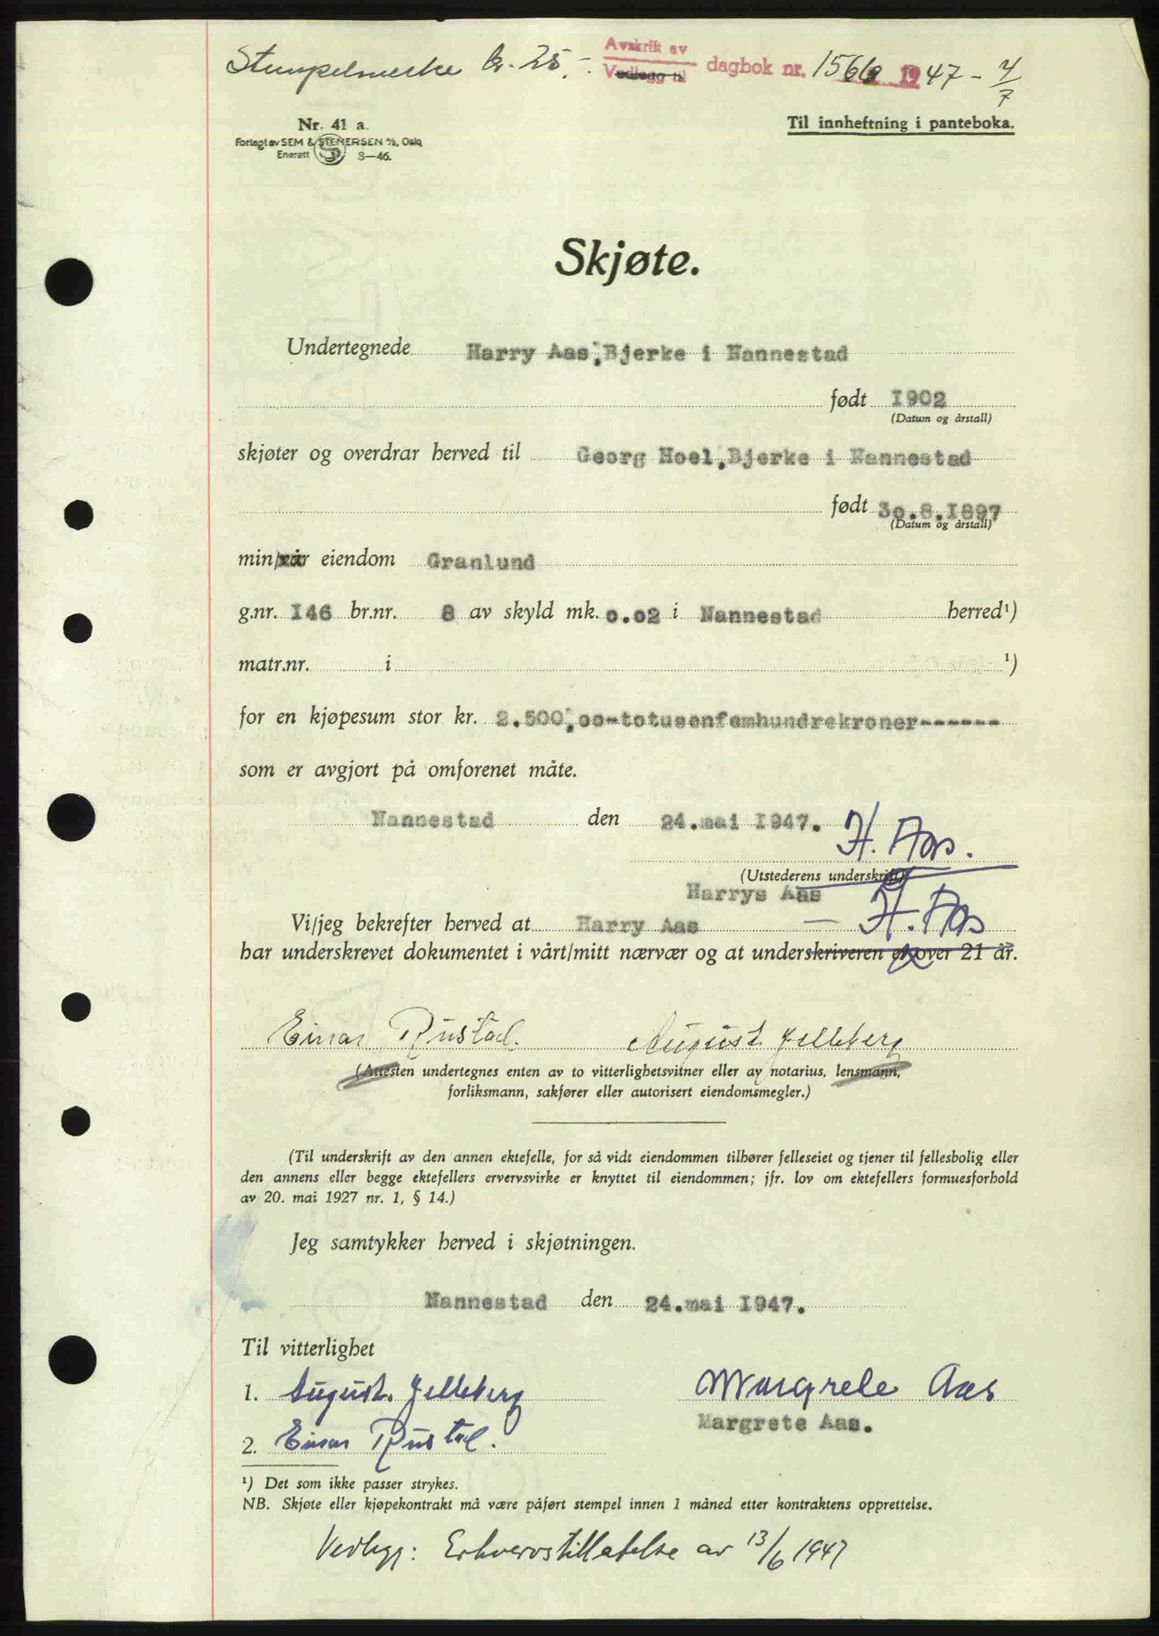 Stempelmerke kr. 25,-
Avskrift av
Vedlegg til dagbok nr. 1566 1947 - 4/7
Nr. 41 a.
Forlagt av SEM & STENERSEN A/S, Oslo
Enerett 8—46.
Til innheftning i panteboka.
Skjøte.
Undertegnede Harry Aas, Bjerke i Nannestad
født 1902
(Datum og årstall)
skjøter og overdrar herved til Georg Hoel, Bjerke i Nannestad
født 3o.8.1897
(Datum og årstall)
min/vår eiendom Granlund
g.nr. 146 br.nr. 8 av skyld mk. o.o2 i Nannestad herred¹)
matr.nr. i ¹)
for en kjøpesum stor kr. 2.500,oo-totusenfemhundrekroner------
som er avgjort på omforenet måte.
Nannestad den 24.mai 1947. H. Aas.
(Utstederens underskrift)
Harrys Aas
Vi/jeg bekrefter herved at Harry Aas — H. Aas
har underskrevet dokumentet i vårt/mitt nærvær og at underskriveren er over 21 år.
Einar Rustad. August Jelleberg
(Attesten undertegnes enten av to vitterlighetsvitner eller av notarius, lensmann,
forliksmann, sakfører eller autorisert eiendomsmegler.)
(Til underskrift av den annen ektefelle, for så vidt eiendommen tilhører felleseiet og tjener til fellesbolig eller
den annens eller begge ektefellers ervervsvirke er knyttet til eiendommen; jfr. lov om ektefellers formuesforhold
av 20. mai 1927 nr. 1, § 14.)
Jeg samtykker herved i skjøtningen.
Nannestad den 24.mai 1947.
Til vitterlighet
1. August Jelleberg Margrete Aas
Margrete Aas.
2. Einar Rustad.
¹) Det som ikke passer strykes.
NB. Skjøte eller kjøpekontrakt må være påført stempel innen 1 måned etter kontraktens opprettelse.
Vedlegg: Erhvervstillatelse av 13/6 1947